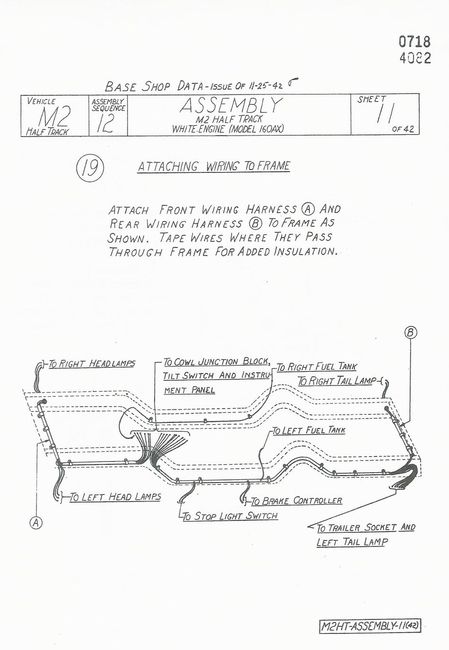 0718
4082
BASE SHOP DATA - ISSUE OF 11-25-42
VEHICLE
M2
HALF TRACK
ASSEMBLY
SEQUENCE
12
ASSEMBLY
M2 HALF TRACK
WHITE-ENGINE (MODEL 160AX)
SHEET
11
OF 42
19 ATTACHING WIRING TO FRAME
ATTACH FRONT WIRING HARNESS A AND
REAR WIRING HARNESS B TO FRAME AS
SHOWN. TAPE WIRES WHERE THEY PASS
THROUGH FRAME FOR ADDED INSULATION.
B
TO RIGHT HEADLAMPS
TO COWL JUNCTION BLOCK,
TILT SWITCH AND INSTRU-
MENT PANEL
TO RIGHT FUEL TANK
TO RIGHT TAIL LAMP
TO LEFT FUEL TANK
TO LEFT HEAD LAMPS
TO STOP LIGHT SWITCH
TO BRAKE CONTROLLER
A
TO TRAILER SOCKET AND
LEFT TAIL LAMP
M2HT-ASSEMBLY-11(42)